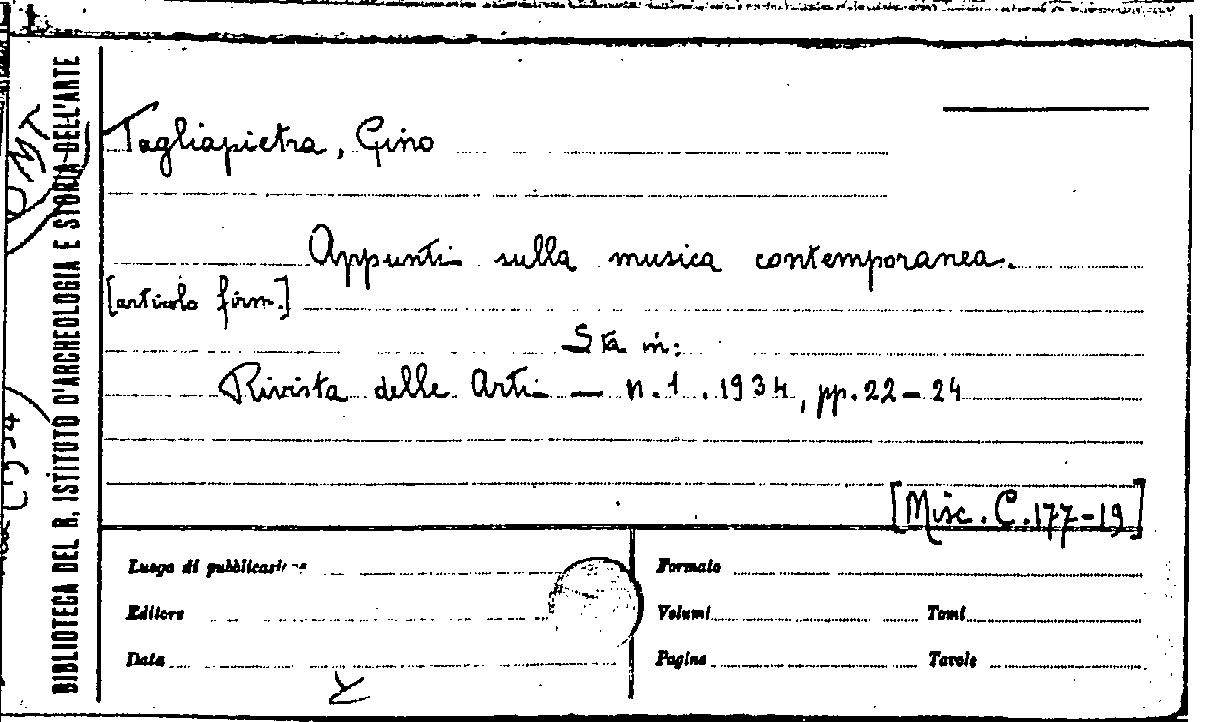 BIBLIOTECA DEL R. ISTITUTO D'ARCHEOLOGIA E STORIA DELL'ARTE
Tagliapietra, Gino
Appunti sulla musica contemporanea.
[articolo firm.]
Sta in:
Rivista delle Arti — n.1.1934, pp.22-24
[Misc. C.177-19]
Luogo di pubblicazione
Formato
Editore
Volumi
Tomi
Data
Pagine
Tavole